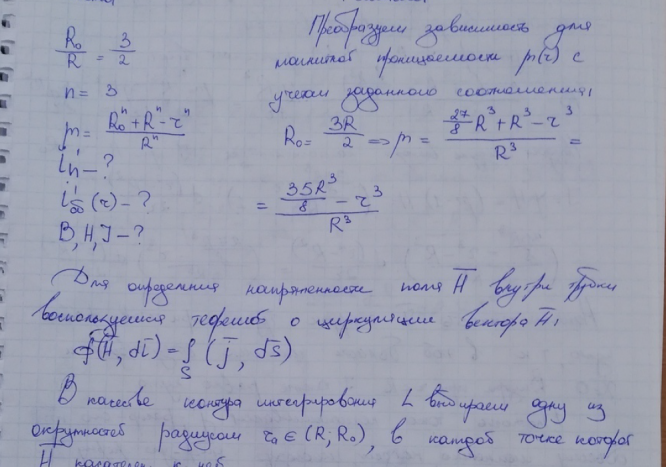 R₀/R = 3/2
n = 3
μ = (R₀ⁿ + Rⁿ - r ⁿ)/Rⁿ
i'п - ?
i'об (r) - ?
B, H, J - ?
Преобразуем зависимость для
магнитной проницаемости μ(r) с
учетом заданного соотношения,
R₀ = 3R/2 => μ = (27/8 R³ + R³ - r³)/R³ =
= (35R³/8 - r³)/R³
Для определения напряженности поля H̅ внутри трубки
воспользуемся теоремой о циркуляции вектора H̅,
∮(H̅, dl̅) = ∫S (j̅, dS̅)
В качестве контура интегрирования L выбираем одну из
окружностей радиусом r₀ ∈ (R; R₀), в каждой точке которой